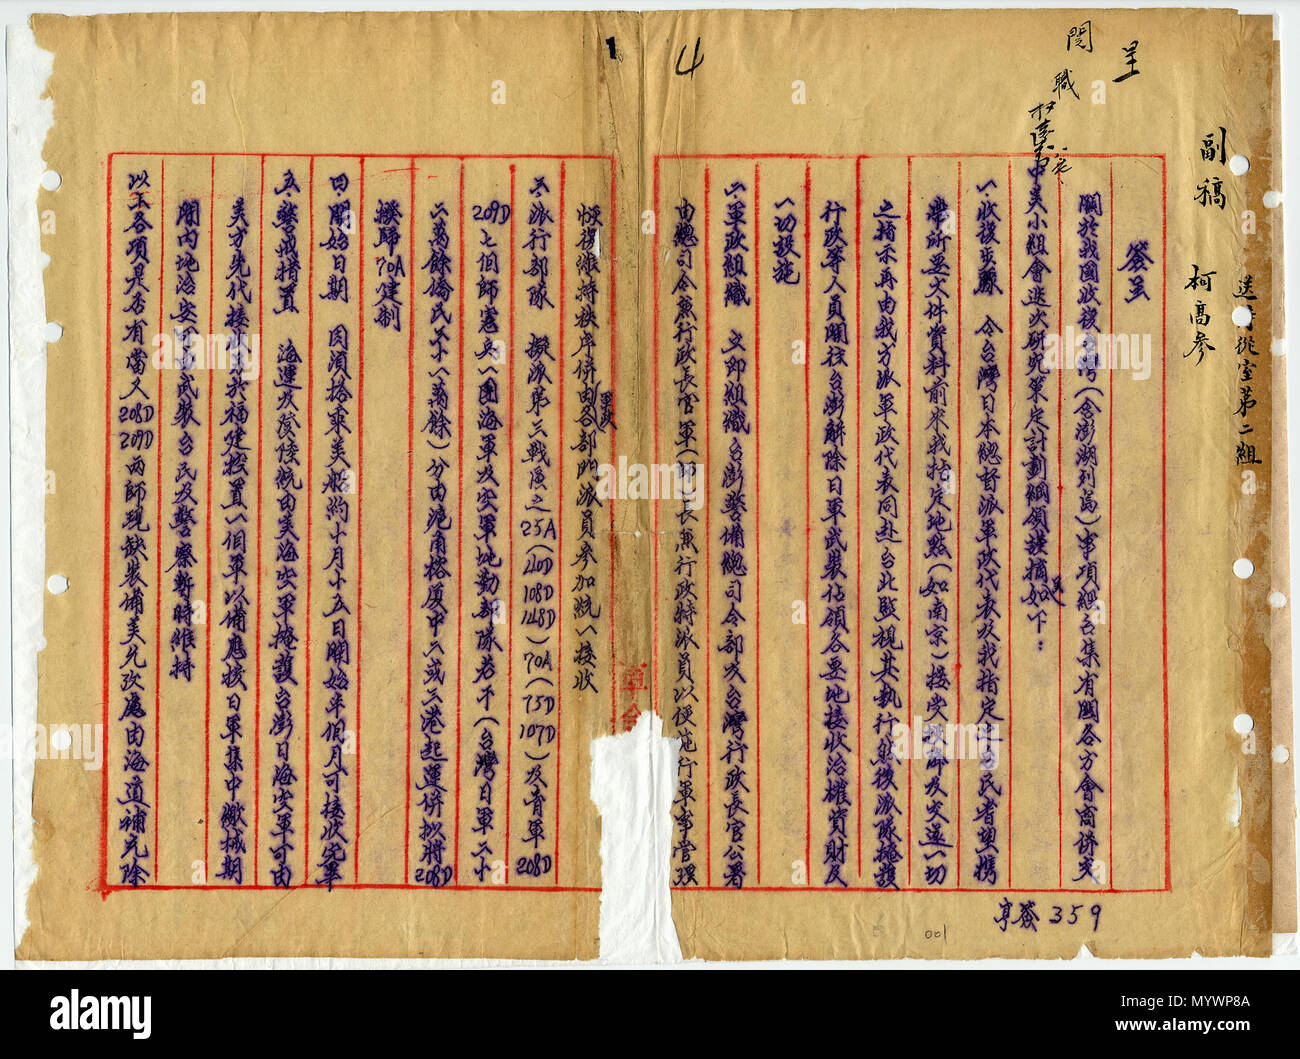 呈
閱
職
副稿
柯高參
送侍從室第二組
4
1
簽呈
關於我國收復台灣(含澎湖列島)事項經召集有關各方會商併交
中美小組會迭次研究策定計劃綱領謹摘呈如下:
一、收復步驟 令台灣日本總督派軍政代表及我指定之台民者壹携
帶所要文件資料前來我指定地點(如南京)接受投降及交送一切
之指示再由我方派軍政代表同赴台北監視其執行然後派隊掩護
行政等人員開往台澎解除日軍武裝佔領各要地接收治權資財及
一切設施
二、軍政組織 立即組織台澎警備總司令部及台灣行政長官公署
由總司令兼行政長官軍(師)長兼行政特派員以便施行軍事管理
恢復維持秩序併由各部門派員參加統一接收
三、派行部隊 擬派第三戰區之25A(40D 108D 148D)70A(75D 107D)及青軍208D
209D七個師憲兵一團海軍及空軍地勤部隊若干(台灣日軍二十
六萬餘僑民五十八萬餘)分由滬角榕廈中二或三港起運併擬將208D
撥歸70A建制
四、開始日期 因須搭乘美船約十月十五日開始半個月可接收完畢
五、警戒措置 海運及登陸統由美海空軍掩護台澎日海空軍可由
美方先代接收至於福建控置一個軍以備應援日軍集中繳械期
間內地治安即由武裝台民及警察暫時維持
以上各項是否有當又208D 209D兩師現缺裝備美允改處由海道補充除
亨簽359
001
alamy
Image ID: MYWP8A
www.alamy.com